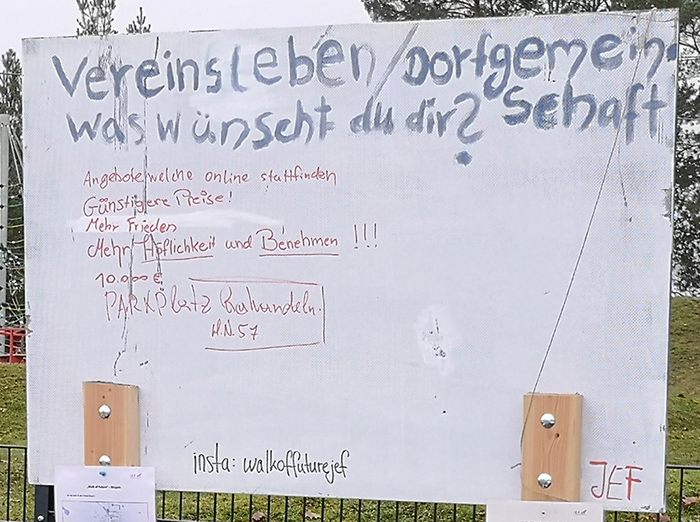 Vereinsleben/Dorfgemein-
was wünscht du dir? schaft
Angebote welche online stattfinden
Günstigere Preise!
Mehr Frieden
Mehr Höflichkeit und Benehmen !!!
10.000 €
PARKPlatz
H.N. 57
insta: walkoffuturejef
JEF